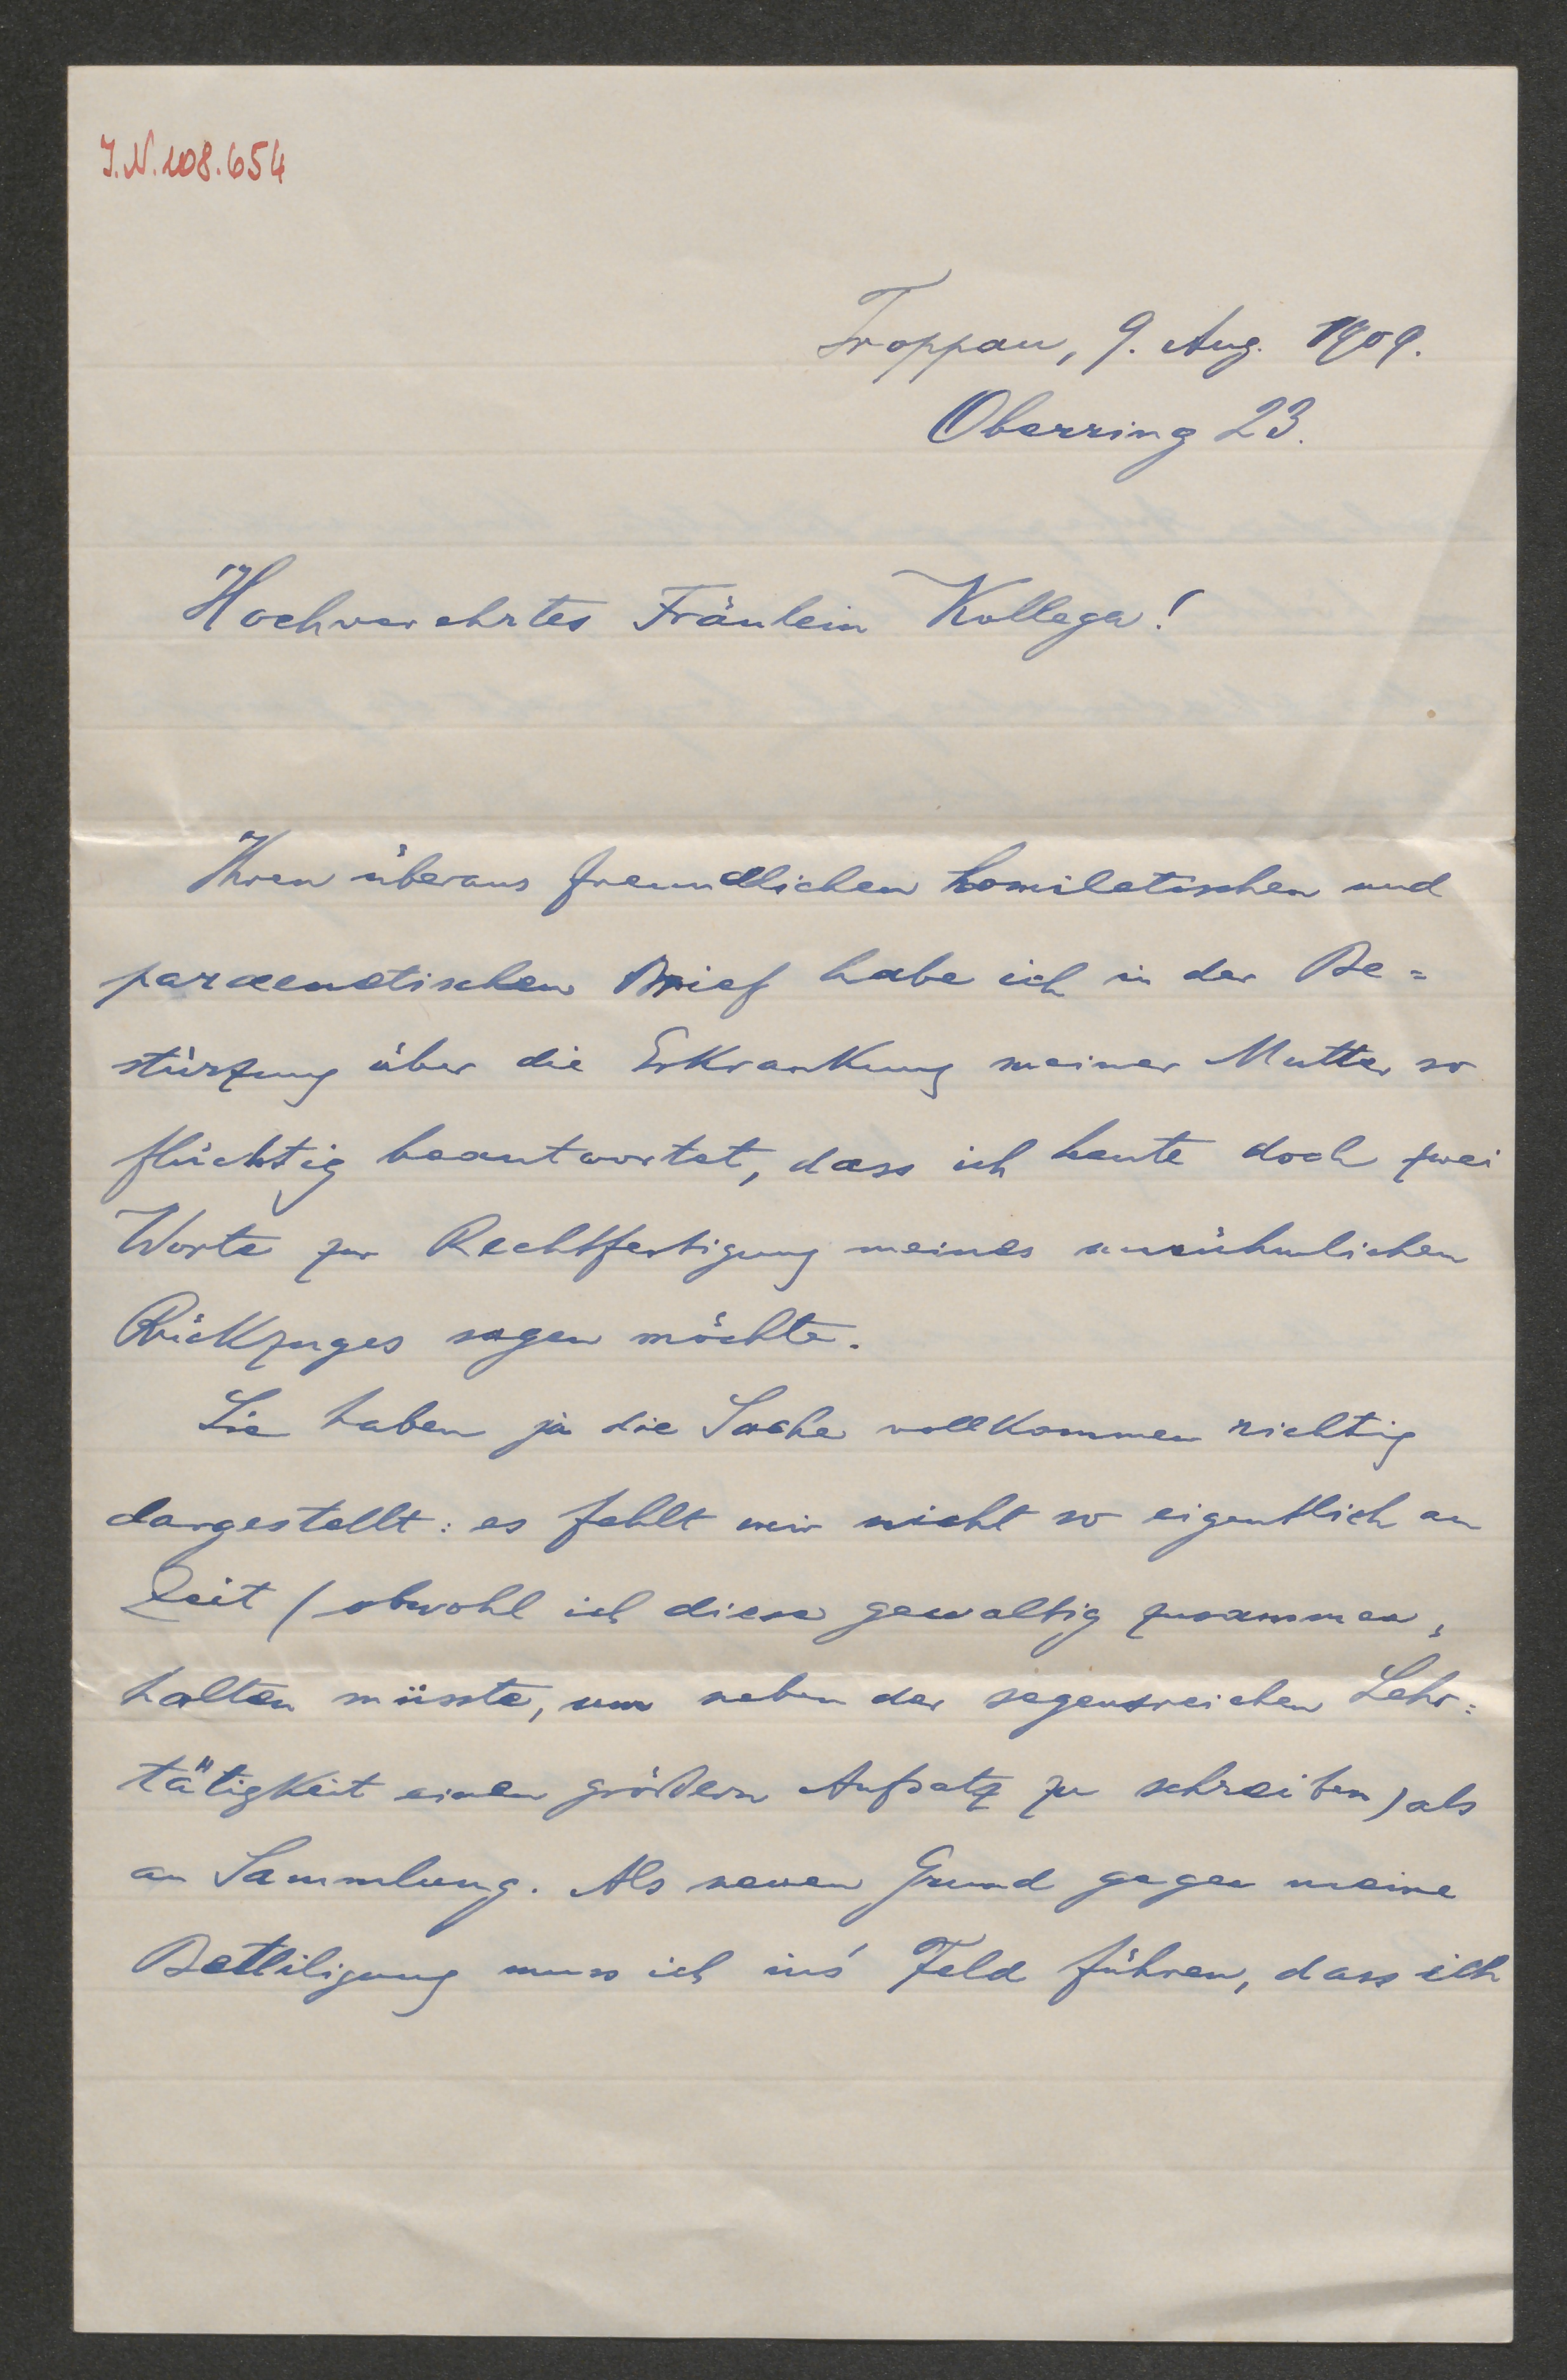 J.N. 108.654
Troppau, 9. Aug. 1909.
Oberring 23.
Hochverehrtes Fräulein Kollega!
Ihren überaus freundlichen homiletischen und
paraenetischen Brief habe ich in der Be=
stürzung über die Erkrankung meiner Mutter so
flüchtig beantwortet, dass ich heute doch zwei
Worte zur Rechtfertigung meines unrühmlichen
Rückzuges sagen möchte.
Sie haben ja die Sache vollkommen richtig
dargestellt: es fehlt mir nicht so eigentlich an
Zeit (obwohl ich diese gewaltig zusammen=
halten müsste, um neben der segensreichen Lehr=
tätigkeit einen größern Aufsatz zu schreiben) als
an Sammlung. Als neuen Grund gegen meine
Beteiligung muss ich ins' Feld führen, dass ich